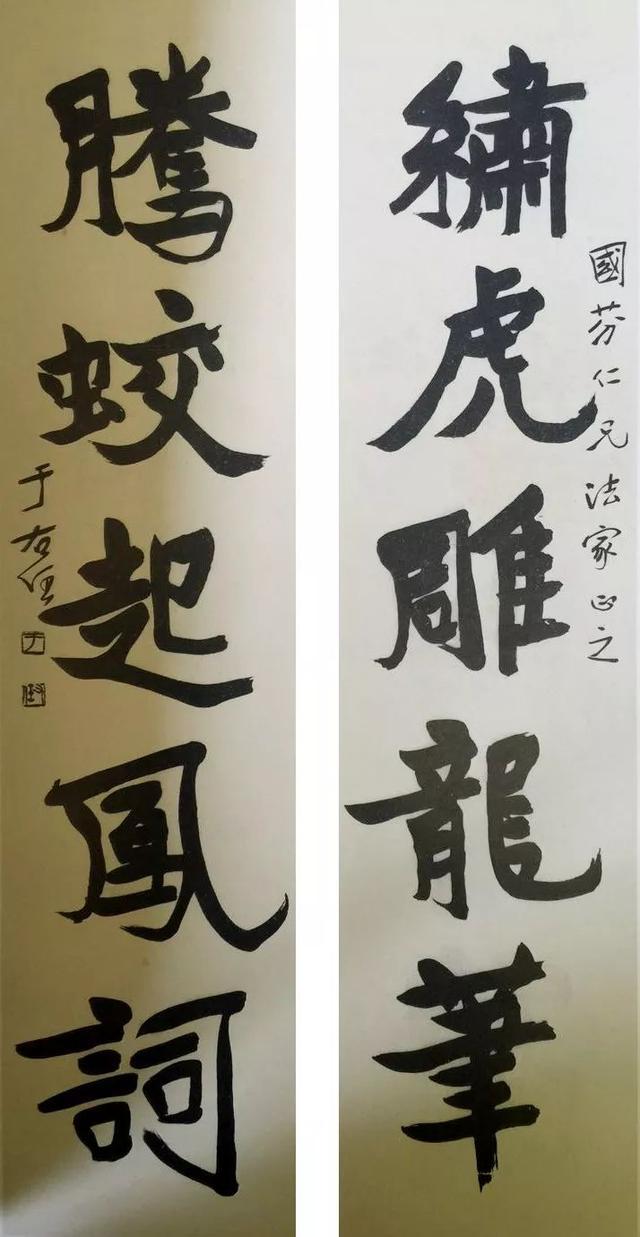 國芬仁兄法家正之
繡虎雕龍筆
騰蛟起鳳詞
于右任